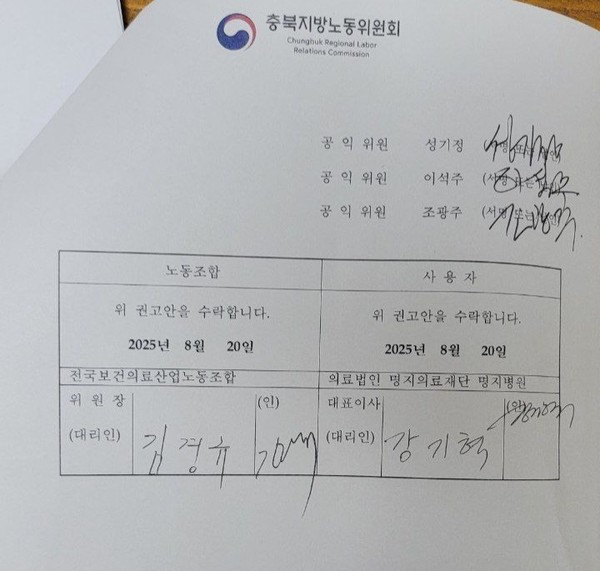 충북지방노동위원회
Chungbuk Regional Labor
Relations Commission
공 익 위 원 성기정
공 익 위 원 이석주 (서명 또는
공 익 위 원 조광주 (서명 또는
노동조합 사 용 자
위 권고안을 수락합니다. 위 권고안을 수락합니다.
2025년 8월 20일 2025년 8월 20일
전국보건의료산업노동조합 의료법인 명지의료재단 명지병원
위 원 장 (인) 대표이사
(대리인) 김 경 규 (대리인) 강 기 혁